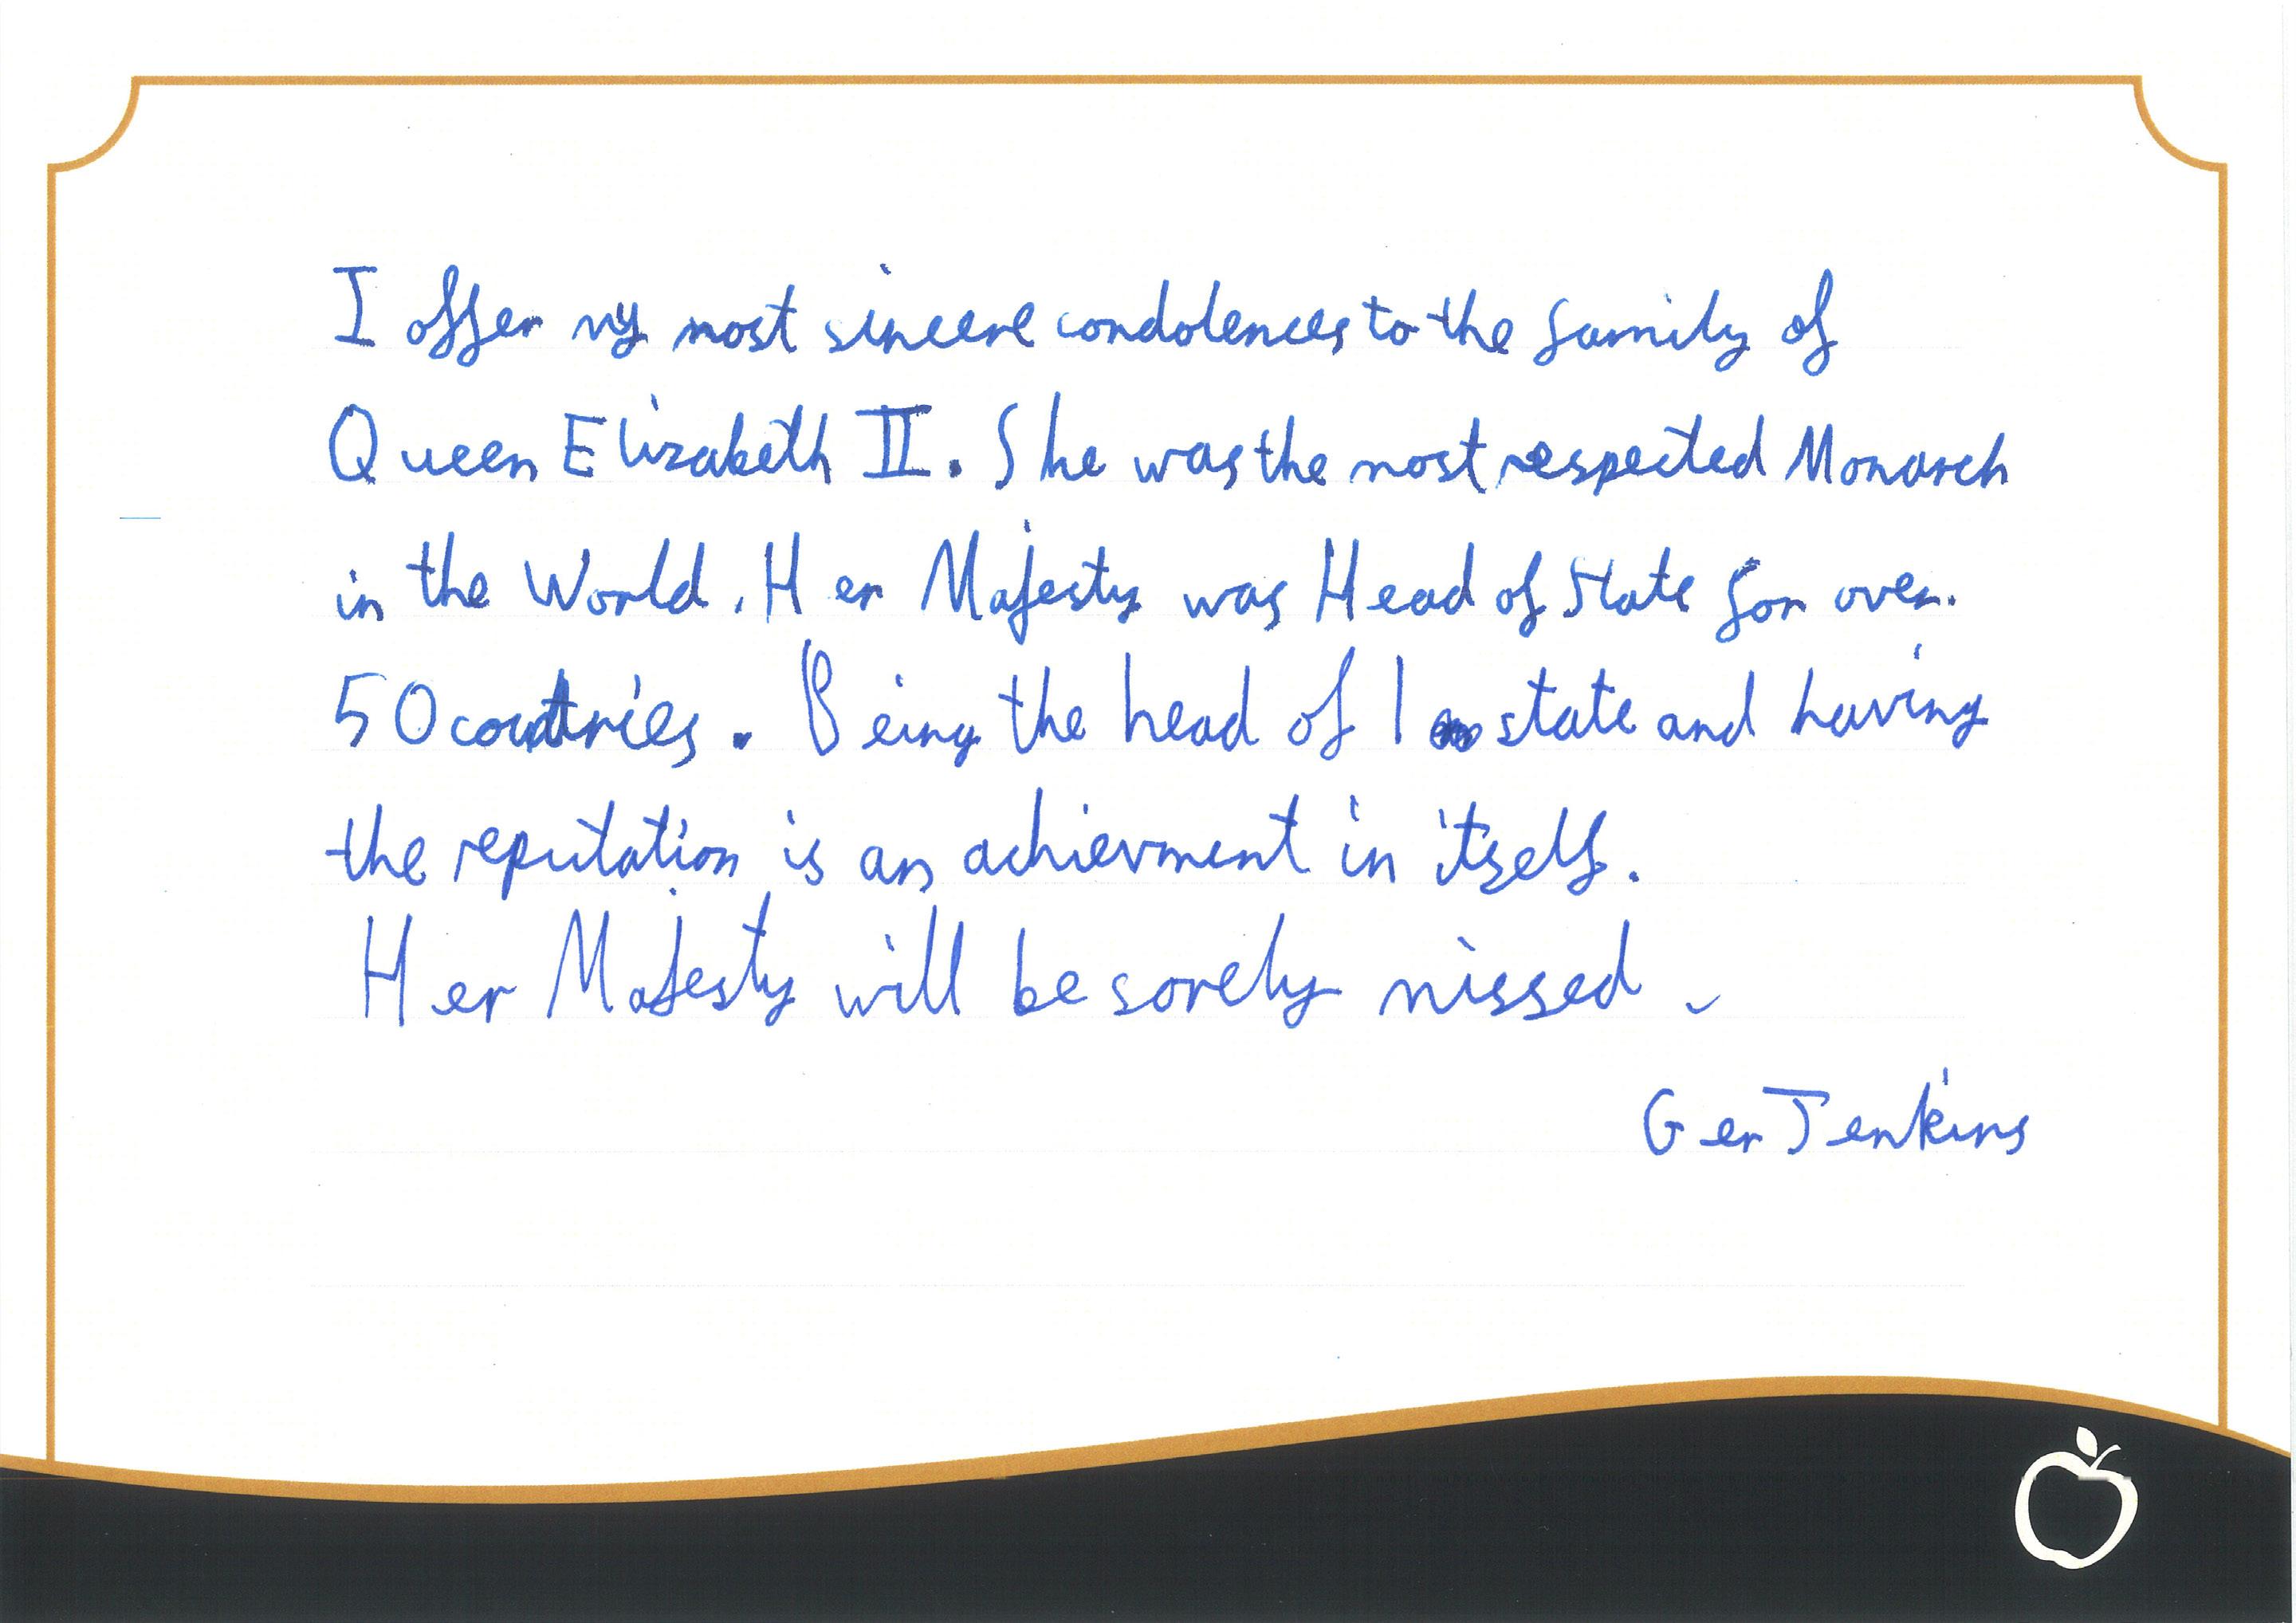 I offer my most sincere condolences to the family of
Queen Elizabeth II. She was the most respected Monarch
in the World. Her Majesty was Head of State for over.
50 countries. Being the head of 1 state and having
the reputation is an achievment in itself.
Her Majesty will be sorely missed.
Ger Jenkins